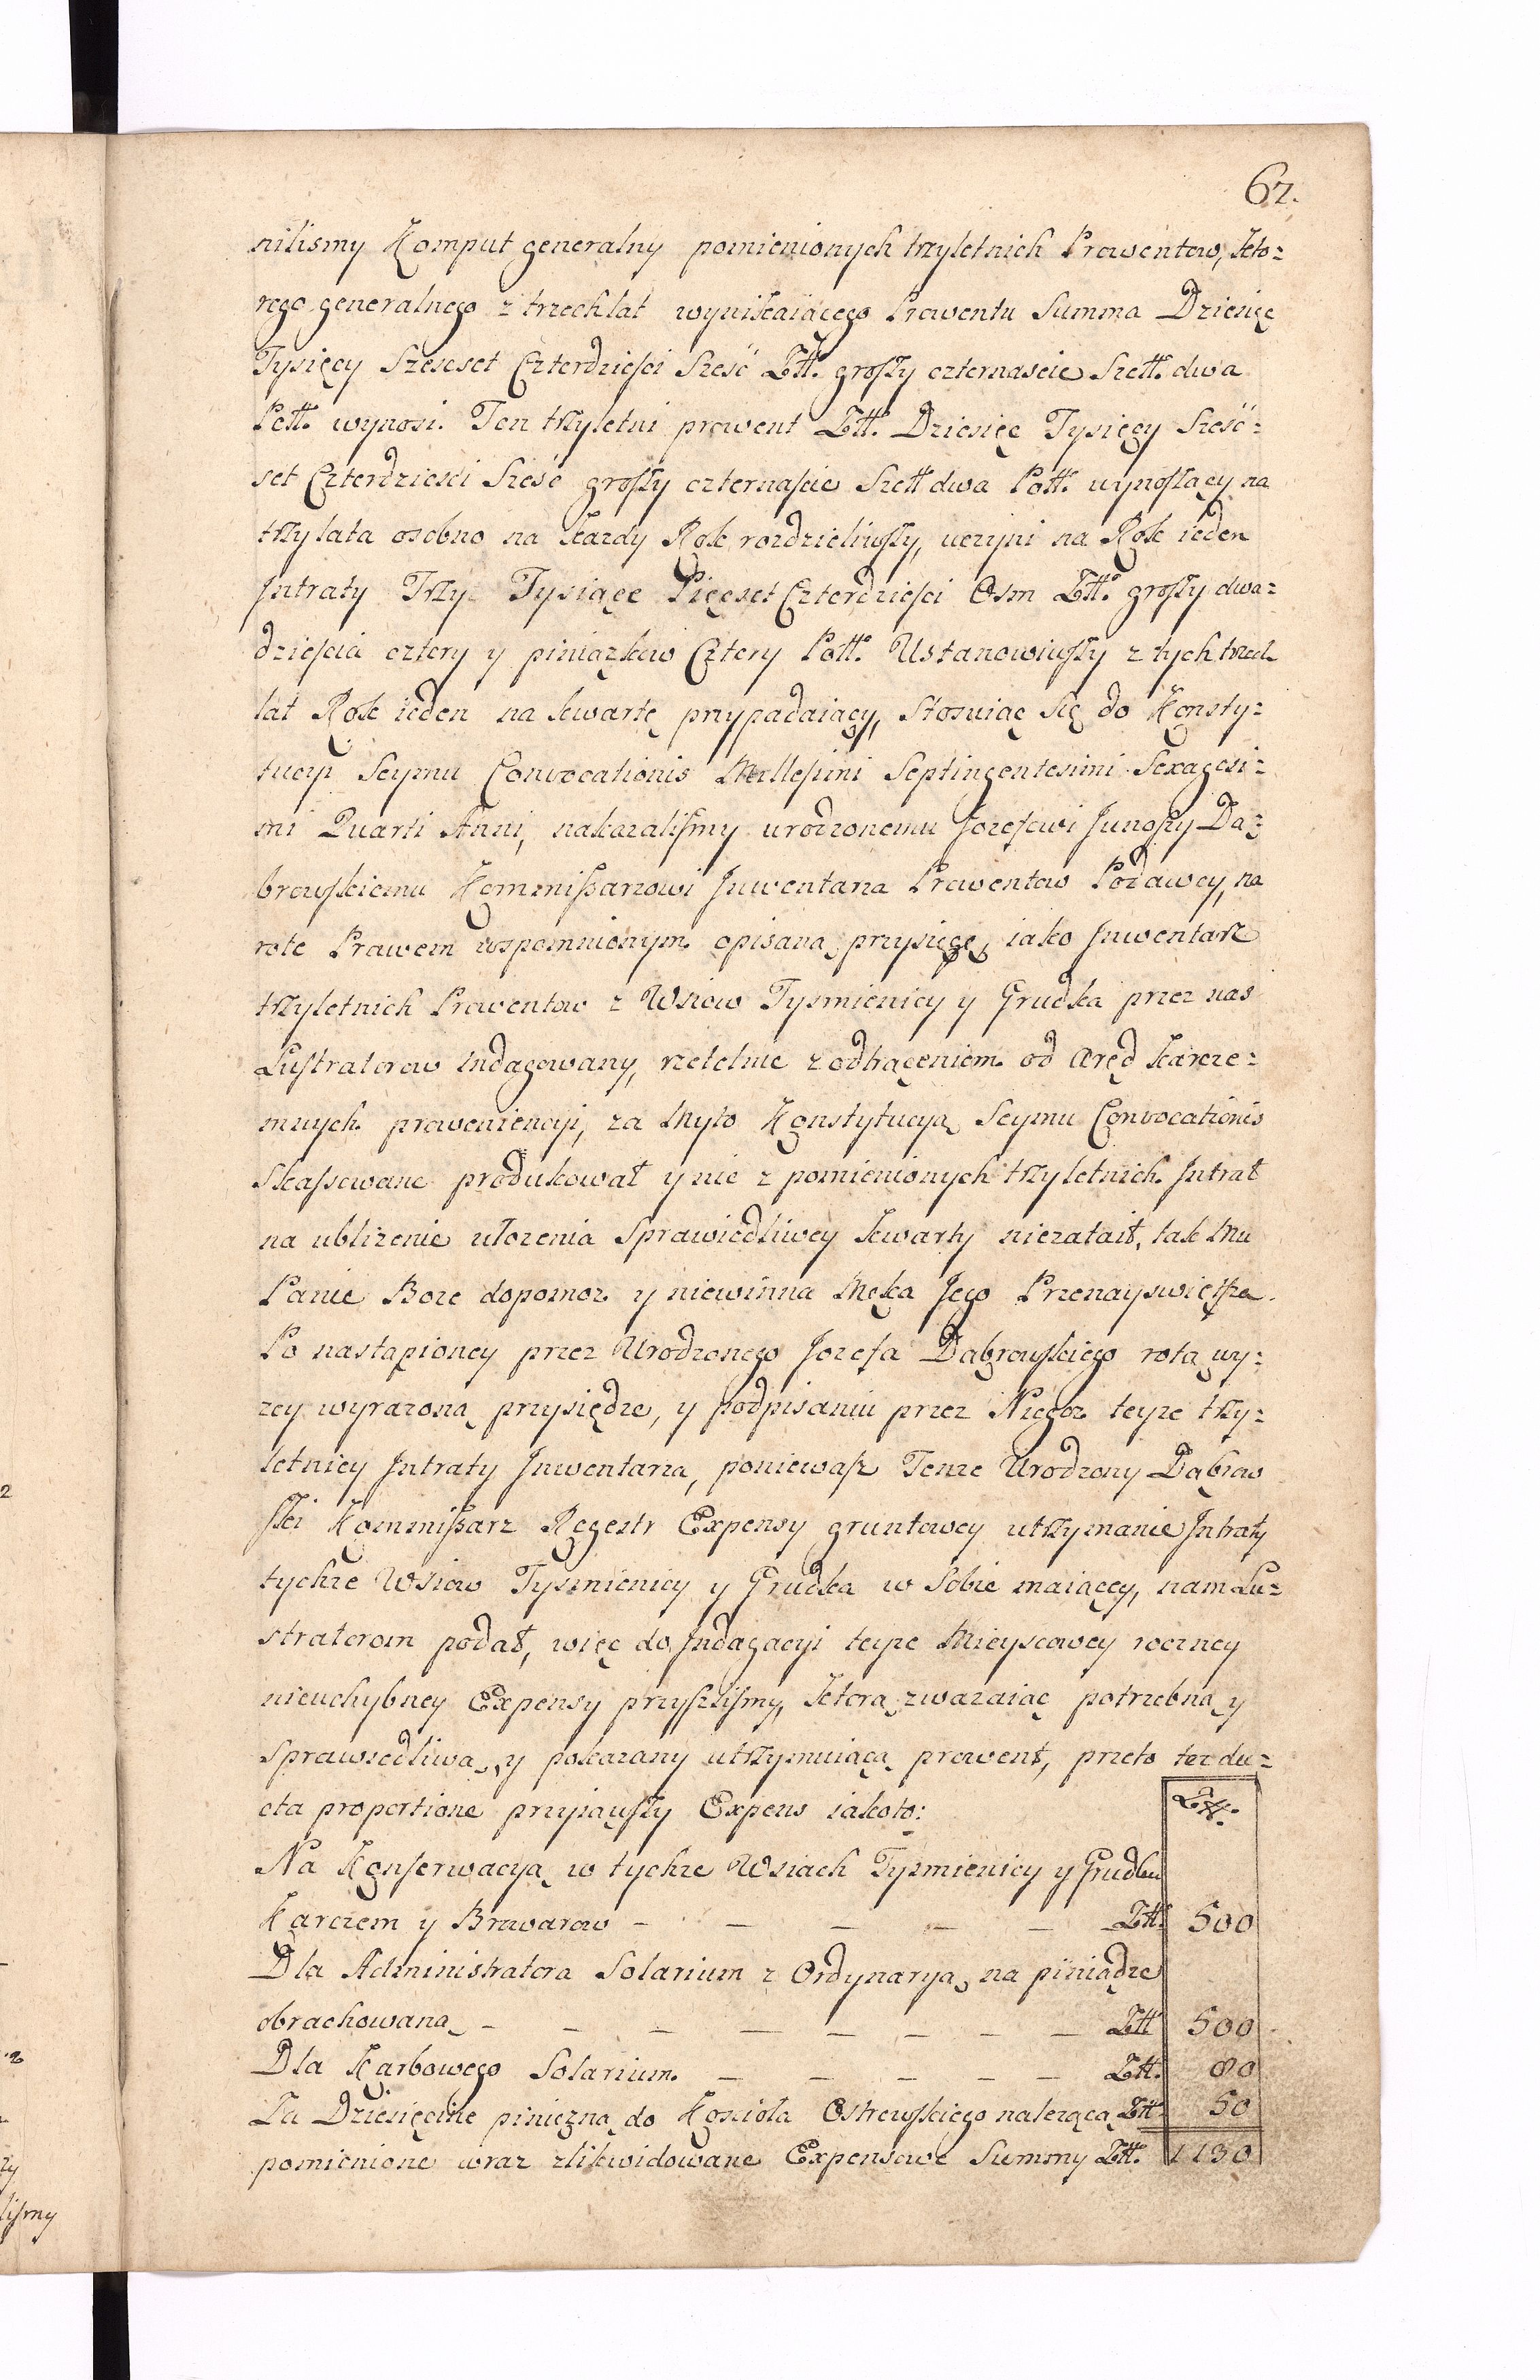 67.
nilismy Komput generalny pomienionych trzyletnich Prowentow, kto=
rego generalnego z trzech lat wynikaiącego Prowentu Summa Dziesięc
Tysięcy Szescset Czterdzieści Sześć Złł. groszy czternascie Szełł. dwa
Połł. wynosi. Ten trzyletni prowent Złł. Dziesięc Tysięcy Sześć=
set Czterdziesci Sześć groszy czternaście Szełł dwa Połł. wynoszący na
trzy lata osobno na każdy Rok rozdzieliwszy, uczyni na Rok ieden
Intraty Trzy Tysiące Pięcset Czterdzieści Osm Złł. groszy dwa=
dzieścia cztery y piniązkow Cztery Połł. Ustanowiwszy z tych trzech
lat Rok ieden na kwartę przypadaiący, Stosuiąc się do Konsty=
tucyi Seymu Convocationis Millesimi Septingentesimi Sexagesi=
mi Quarti Anni, nakazaliśmy urodzonemu Jozefowi Junoszy Da=
browskiemu Kommissarzowi Inwentarza Prowentow Podawcy, na
rotę Prawem wspomnionym opisaną przysięgę, iako Inwentarz
trzyletnich Prowentow z Wsiow Tysmienicy y Grudka przez nas
Lustratorow indagowany, rzetelnie z odtrąceniem od aręd karcze=
mnych proweniencyi, za Myto Konstytucyą Seymu Convocationis
Skassowane produkował y nic z pomienionych trzyletnich Intrat
na ubliżenie ułożenia Sprawiedliwey kwarty niezataił, tak Mu
Panie Boze dopomoz y niewinna Męka Jego Przenayswiętsza.
Po nastąpioney przez Urodzonego Jozefa Dąbrowskiego rotą wy=
zey wyrazoną przysiędze, y podpisaniu przez Niegoz teyze trzy=
letniey Intraty Inwentarza, ponieważ Tenze Urodzony Dąbrow
ski Kommissarz Regestr Expensy gruntowey utrzymanie Intraty
tychze Wsiow Tysmienicy y Grudka w Sobie maiącey, nam Lu=
stratorom podał, więc do Indagacyi teyze Mieyscowey roczney
nieuchybney Expensy przyszliśmy, ktorą zwazaiąc potrzebną y
Sprawiedliwą, y pokazany utrzymuiącą prowent, przeto tez du=
cta proportione przyiąwszy Expens iakoto:
Złł.
Na Konserwacyą w tychze Wsiach Tyzmienicy y Grudku
Karczem y Browarow – – – – – Złł. 500
Dla Administratora Solarium z Ordynaryą na piniądze
obrachowaną – – – – – – – – Złł 500
Dla Karbowego Solarium. – – – – – Złł. 80
Za Dziesięcine pinięzną do Kościoła Ostrowskiego nalezącą Złł 50
pomienione wraz zlikwidowane Expensowe Summy Złł. 1130